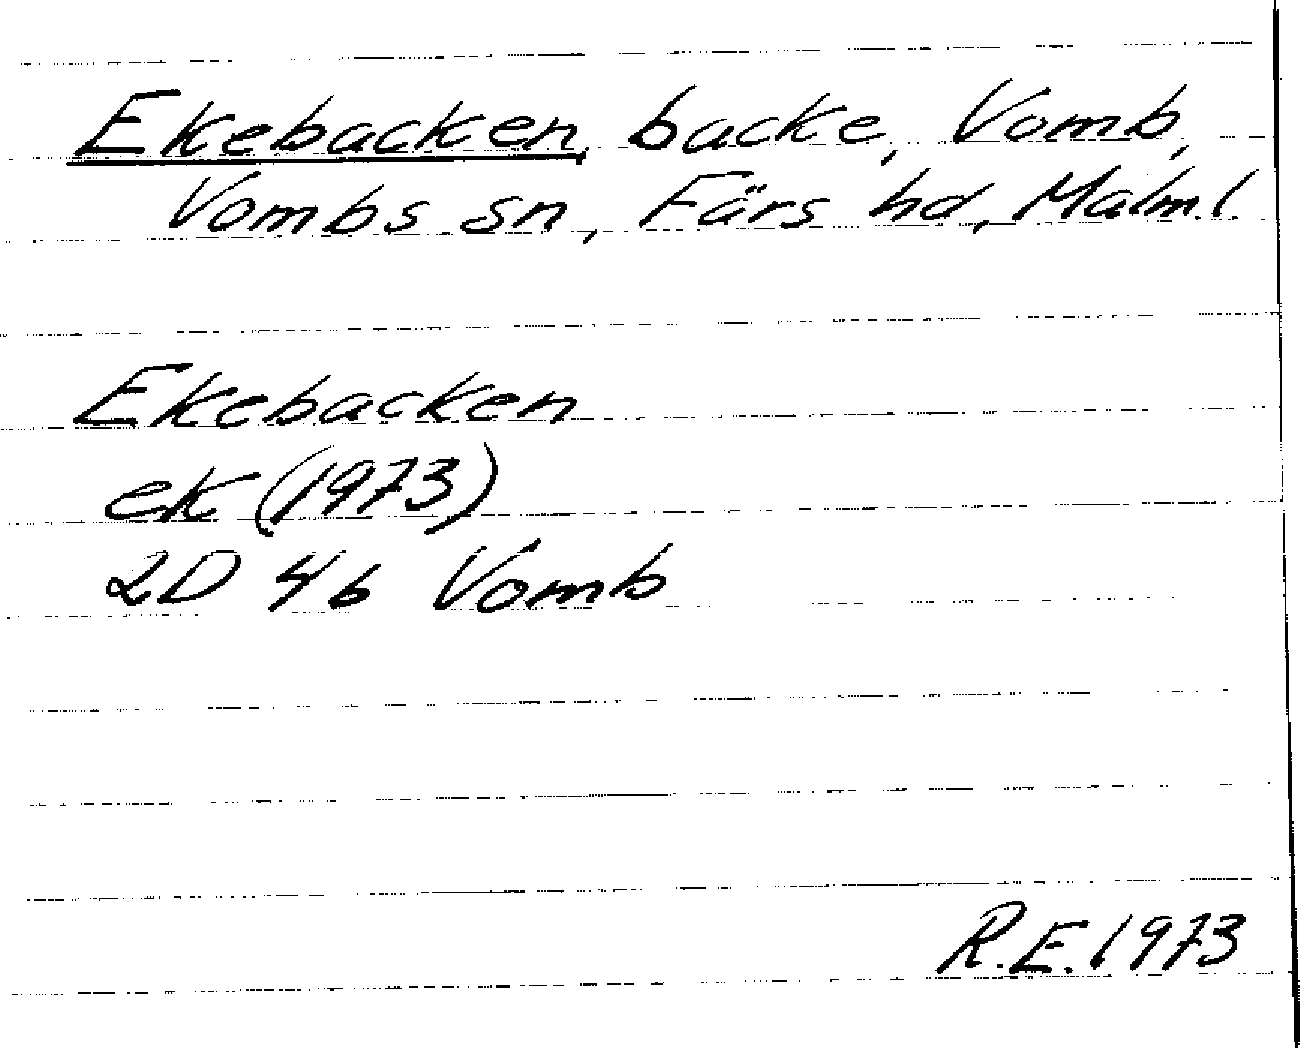 Ekebacken, backe, Vomb,
Vombs sn, Färs hd, Malm.l.
Ekebacken
ek (1973)
2D 4b Vomb
R.E. 1973